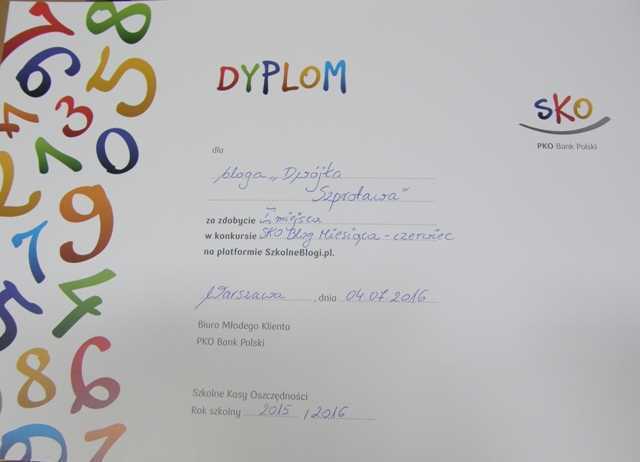 DYPLOM
SKO
PKO Bank Polski
dla
bloga „Dwójka
Szprotawa"
za zdobycie I miejsca
w konkursie SKO Blog Miesiąca - czerwiec
na platformie SzkolneBlogi.pl.
Warszawa, dnia 04.07.2016
Biuro Młodego Klienta
PKO Bank Polski
Szkolne Kasy Oszczędności
Rok szkolny 2015 / 2016